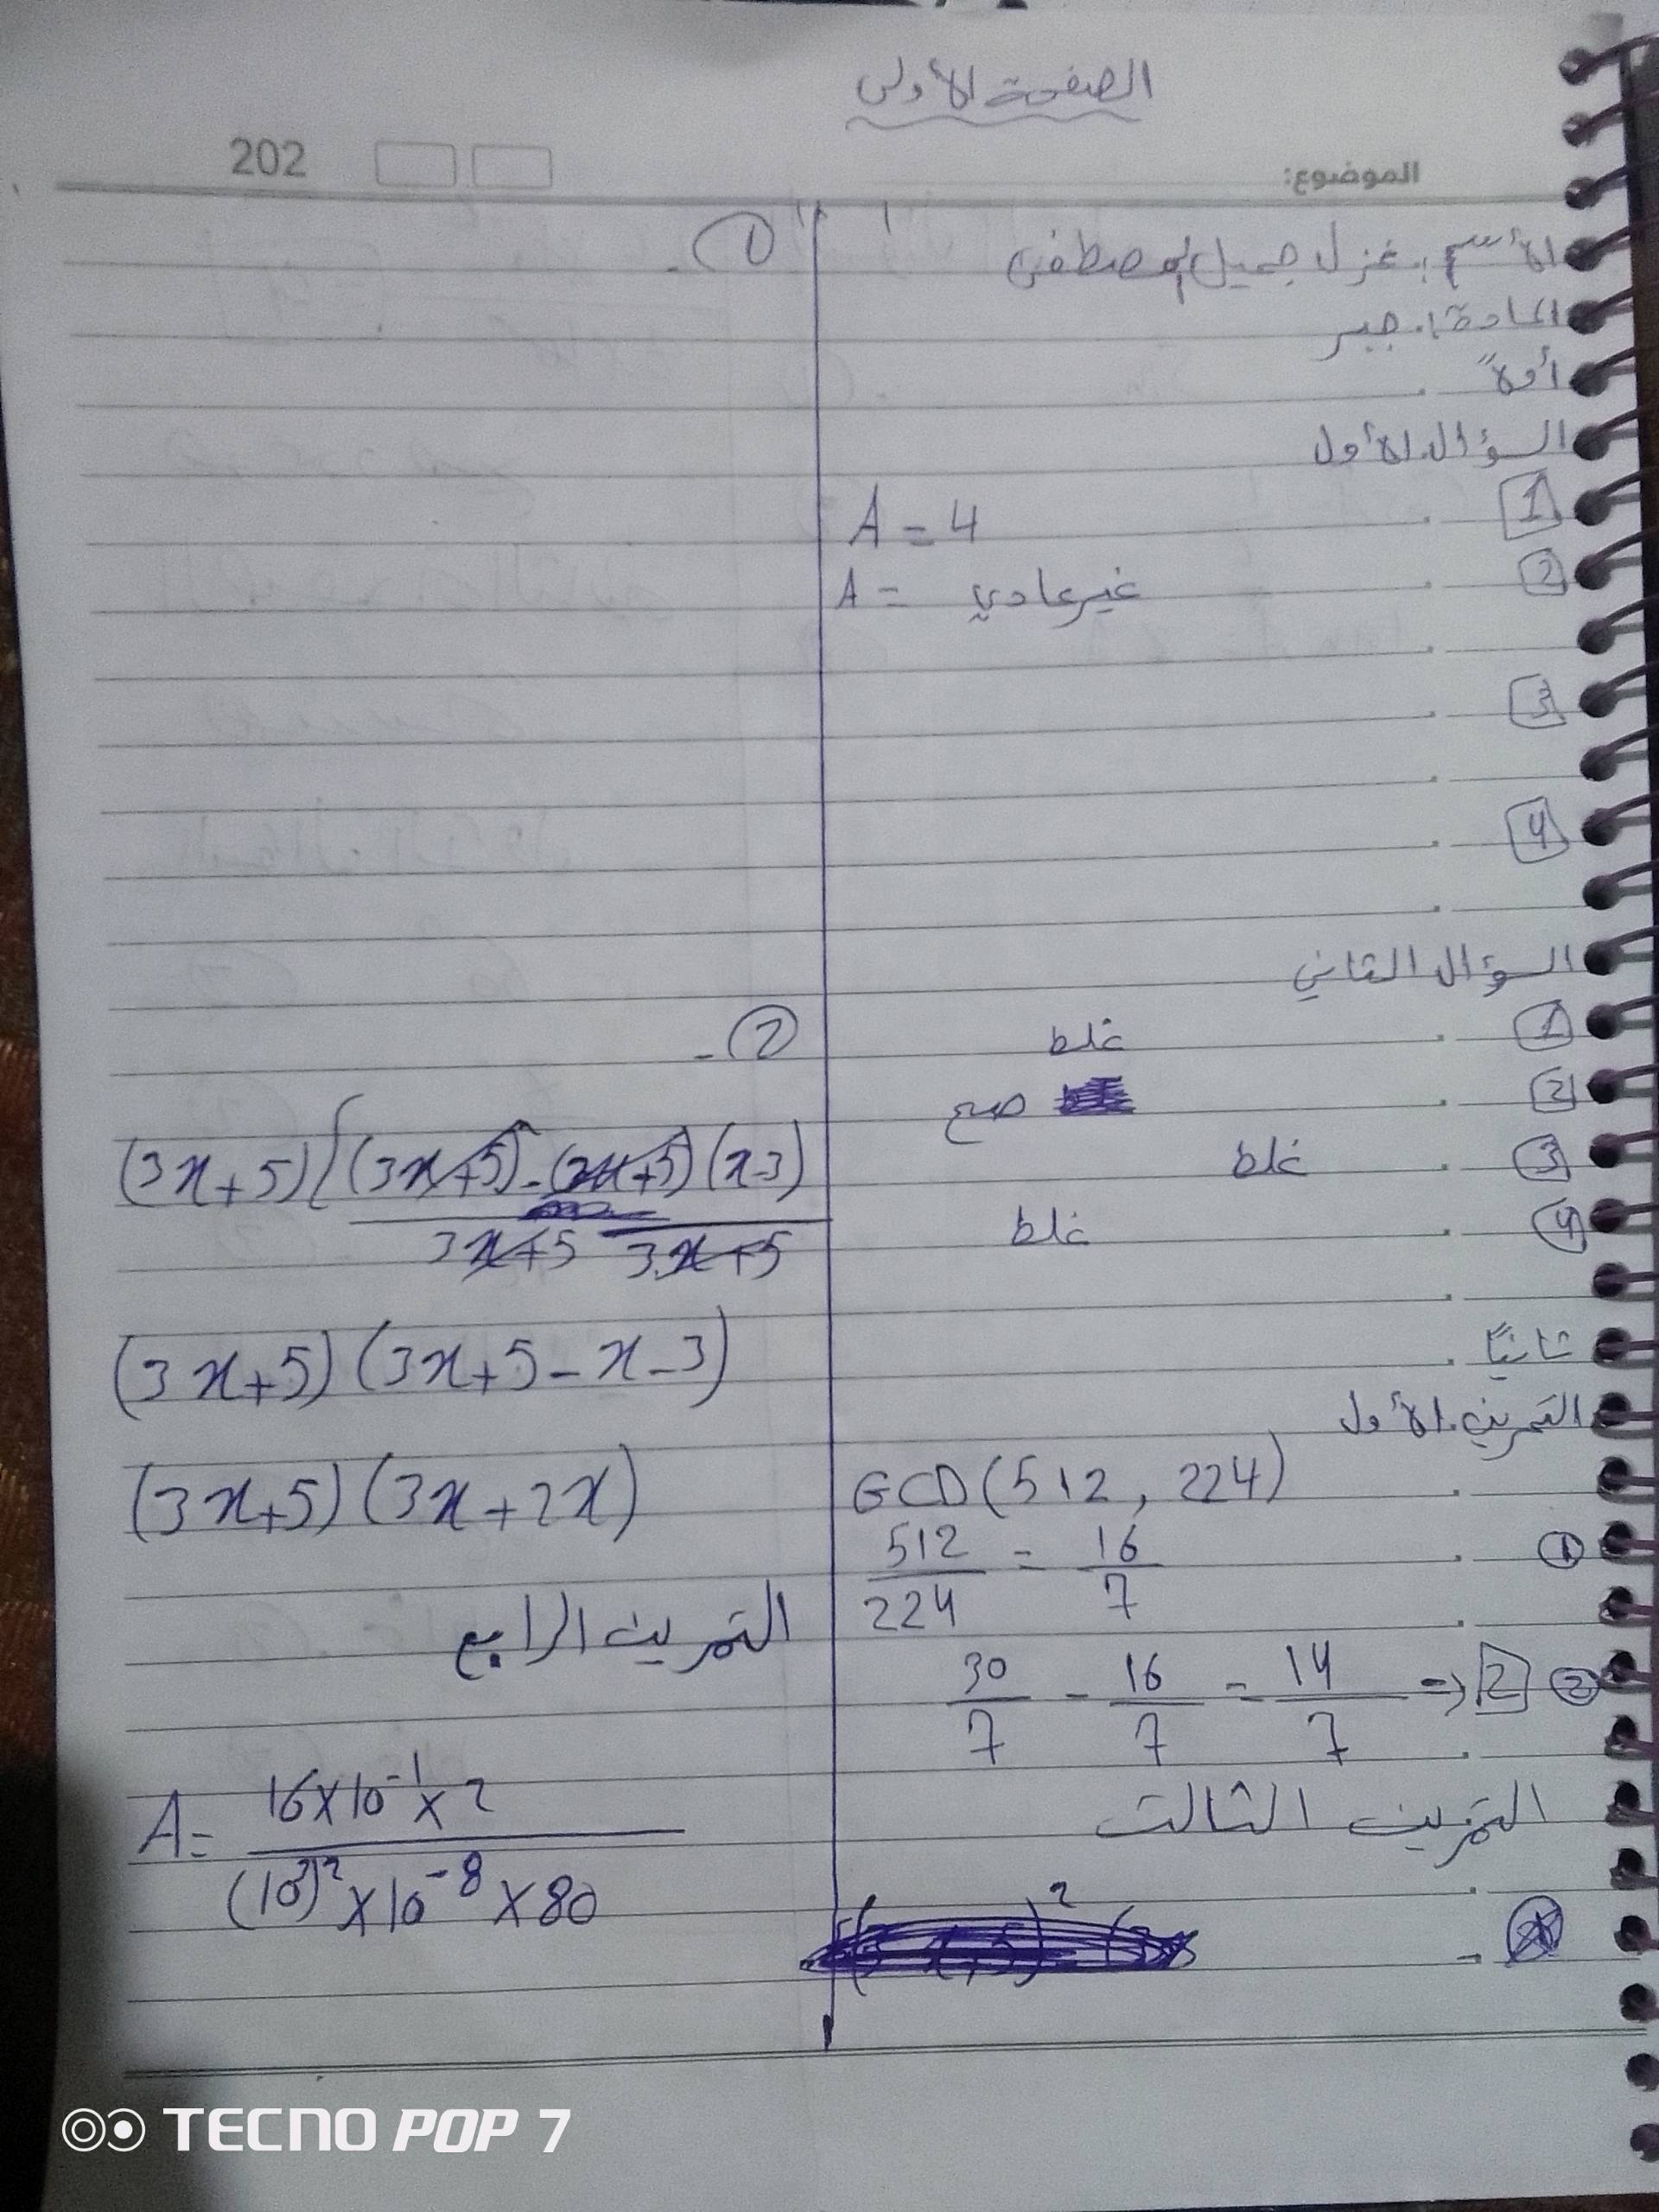 الصفحة الأولى
الموضوع:
202
الأسم: غزل جميل المصطفى
المادة: جبر
أولاً
السؤال الأول
1 A = 4
2 A = غير عادي
3
4
السؤال الثاني
1 غلط
2 صح
3 غلط
4 غلط
ثانياً
التمرين الأول
GCD(512, 224)
① 512/224 = 16/7
② 30/7 - 16/7 = 14/7 => 2
التمرين الثالت
①
②
(3x+5)[(3x+5) - (3x+5)(x-3)
3x+5 3x+5
(3x+5)(3x+5-x-3)
(3x+5)(3x+2x)
التمرين الرابع
A = 16x10⁻¹x2
(10³)²x10⁻⁸x80
TECNO POP 7